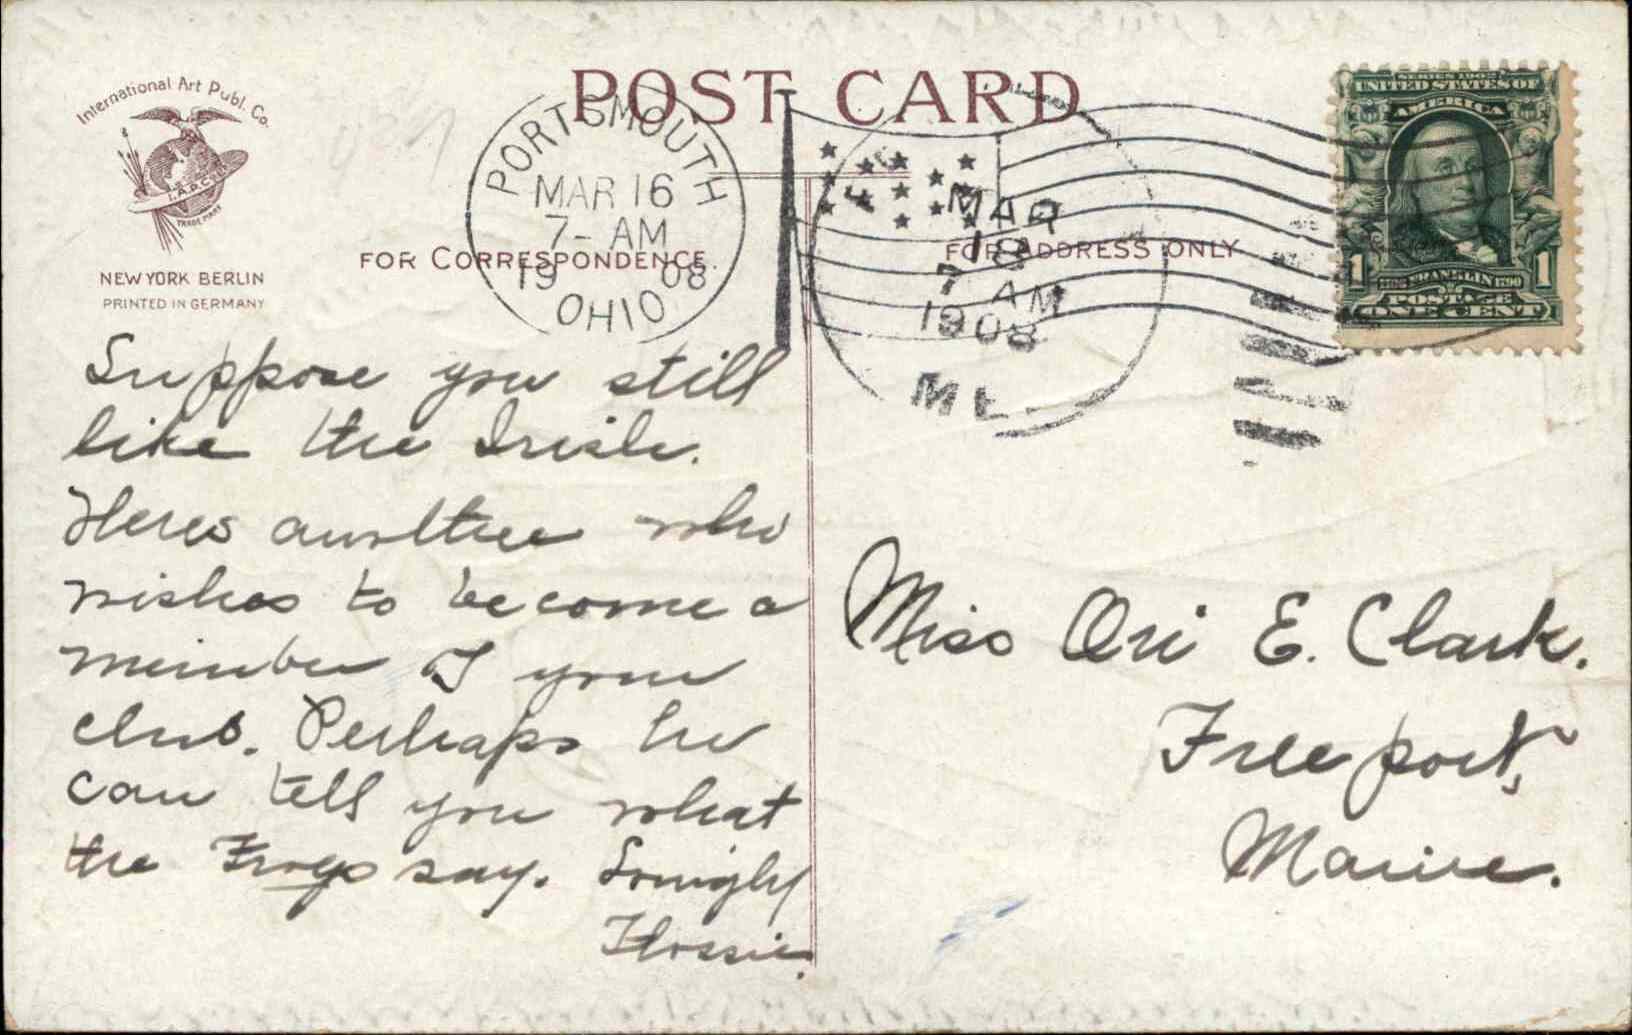 International Art Publ. Co.
I.A.P.C.
TRADE MARK
NEW YORK BERLIN
PRINTED IN GERMANY
POST CARD
FOR CORRESPONDENCE.
FOR ADDRESS ONLY
PORTSMOUTH
MAR 16
7- AM
1908
OHIO
MAR
18
7 AM
1908
ME.
SERIES 1902
UNITED STATES OF
AMERICA
1 FRANKLIN 1
POSTAGE
ONE CENT
Suppose you still
like the Irish.
Heres another who
wishes to become a
member of your
club. Perhaps he
can tell you what
the Frogs say.
Flossie.
Miss Ori E. Clark.
Freeport,
Maine.